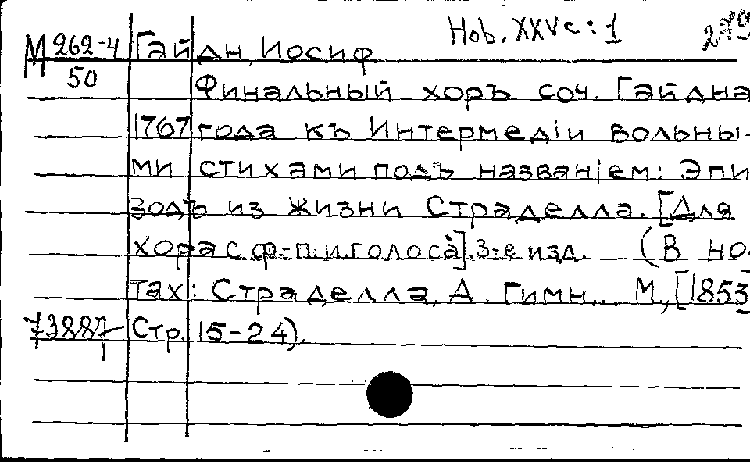 Hob. XXVc:1 279
М 262-4 Гайдн, Иосиф
50
Финальный хоръ соч. Гайдна
1767 года къ Интермедіи вольны-
ми стихами подъ названіем: Эпи
зодъ из жизни Страделла. [Для
хора с ф-п. и голоса]. 3-е изд. (В но-
тах: Страделла, А. Гимн... М., [1853]
73887 Стр. 15-24).
1